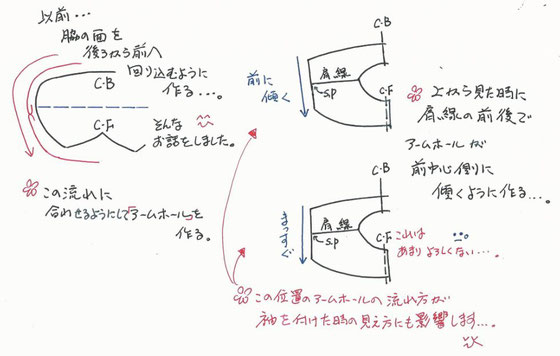 以前…
脇の面を
後ろから前へ
回り込むように
作る…。
C・B
C・F
そんな
お話をしました。
この流れに
合わせるようにして「アームホール」を
作る。
C・B
前に
傾く
肩線
S.P
C・F
上から見た時に
肩線の前後で
アームホールが
前中心側に
傾くように作る…。
C・B
まっすぐ
肩線
S.P
C・F
これは
あまりよろしくない…。
この位置のアームホールの流れ方が
袖を付けた時の見え方にも影響します…。